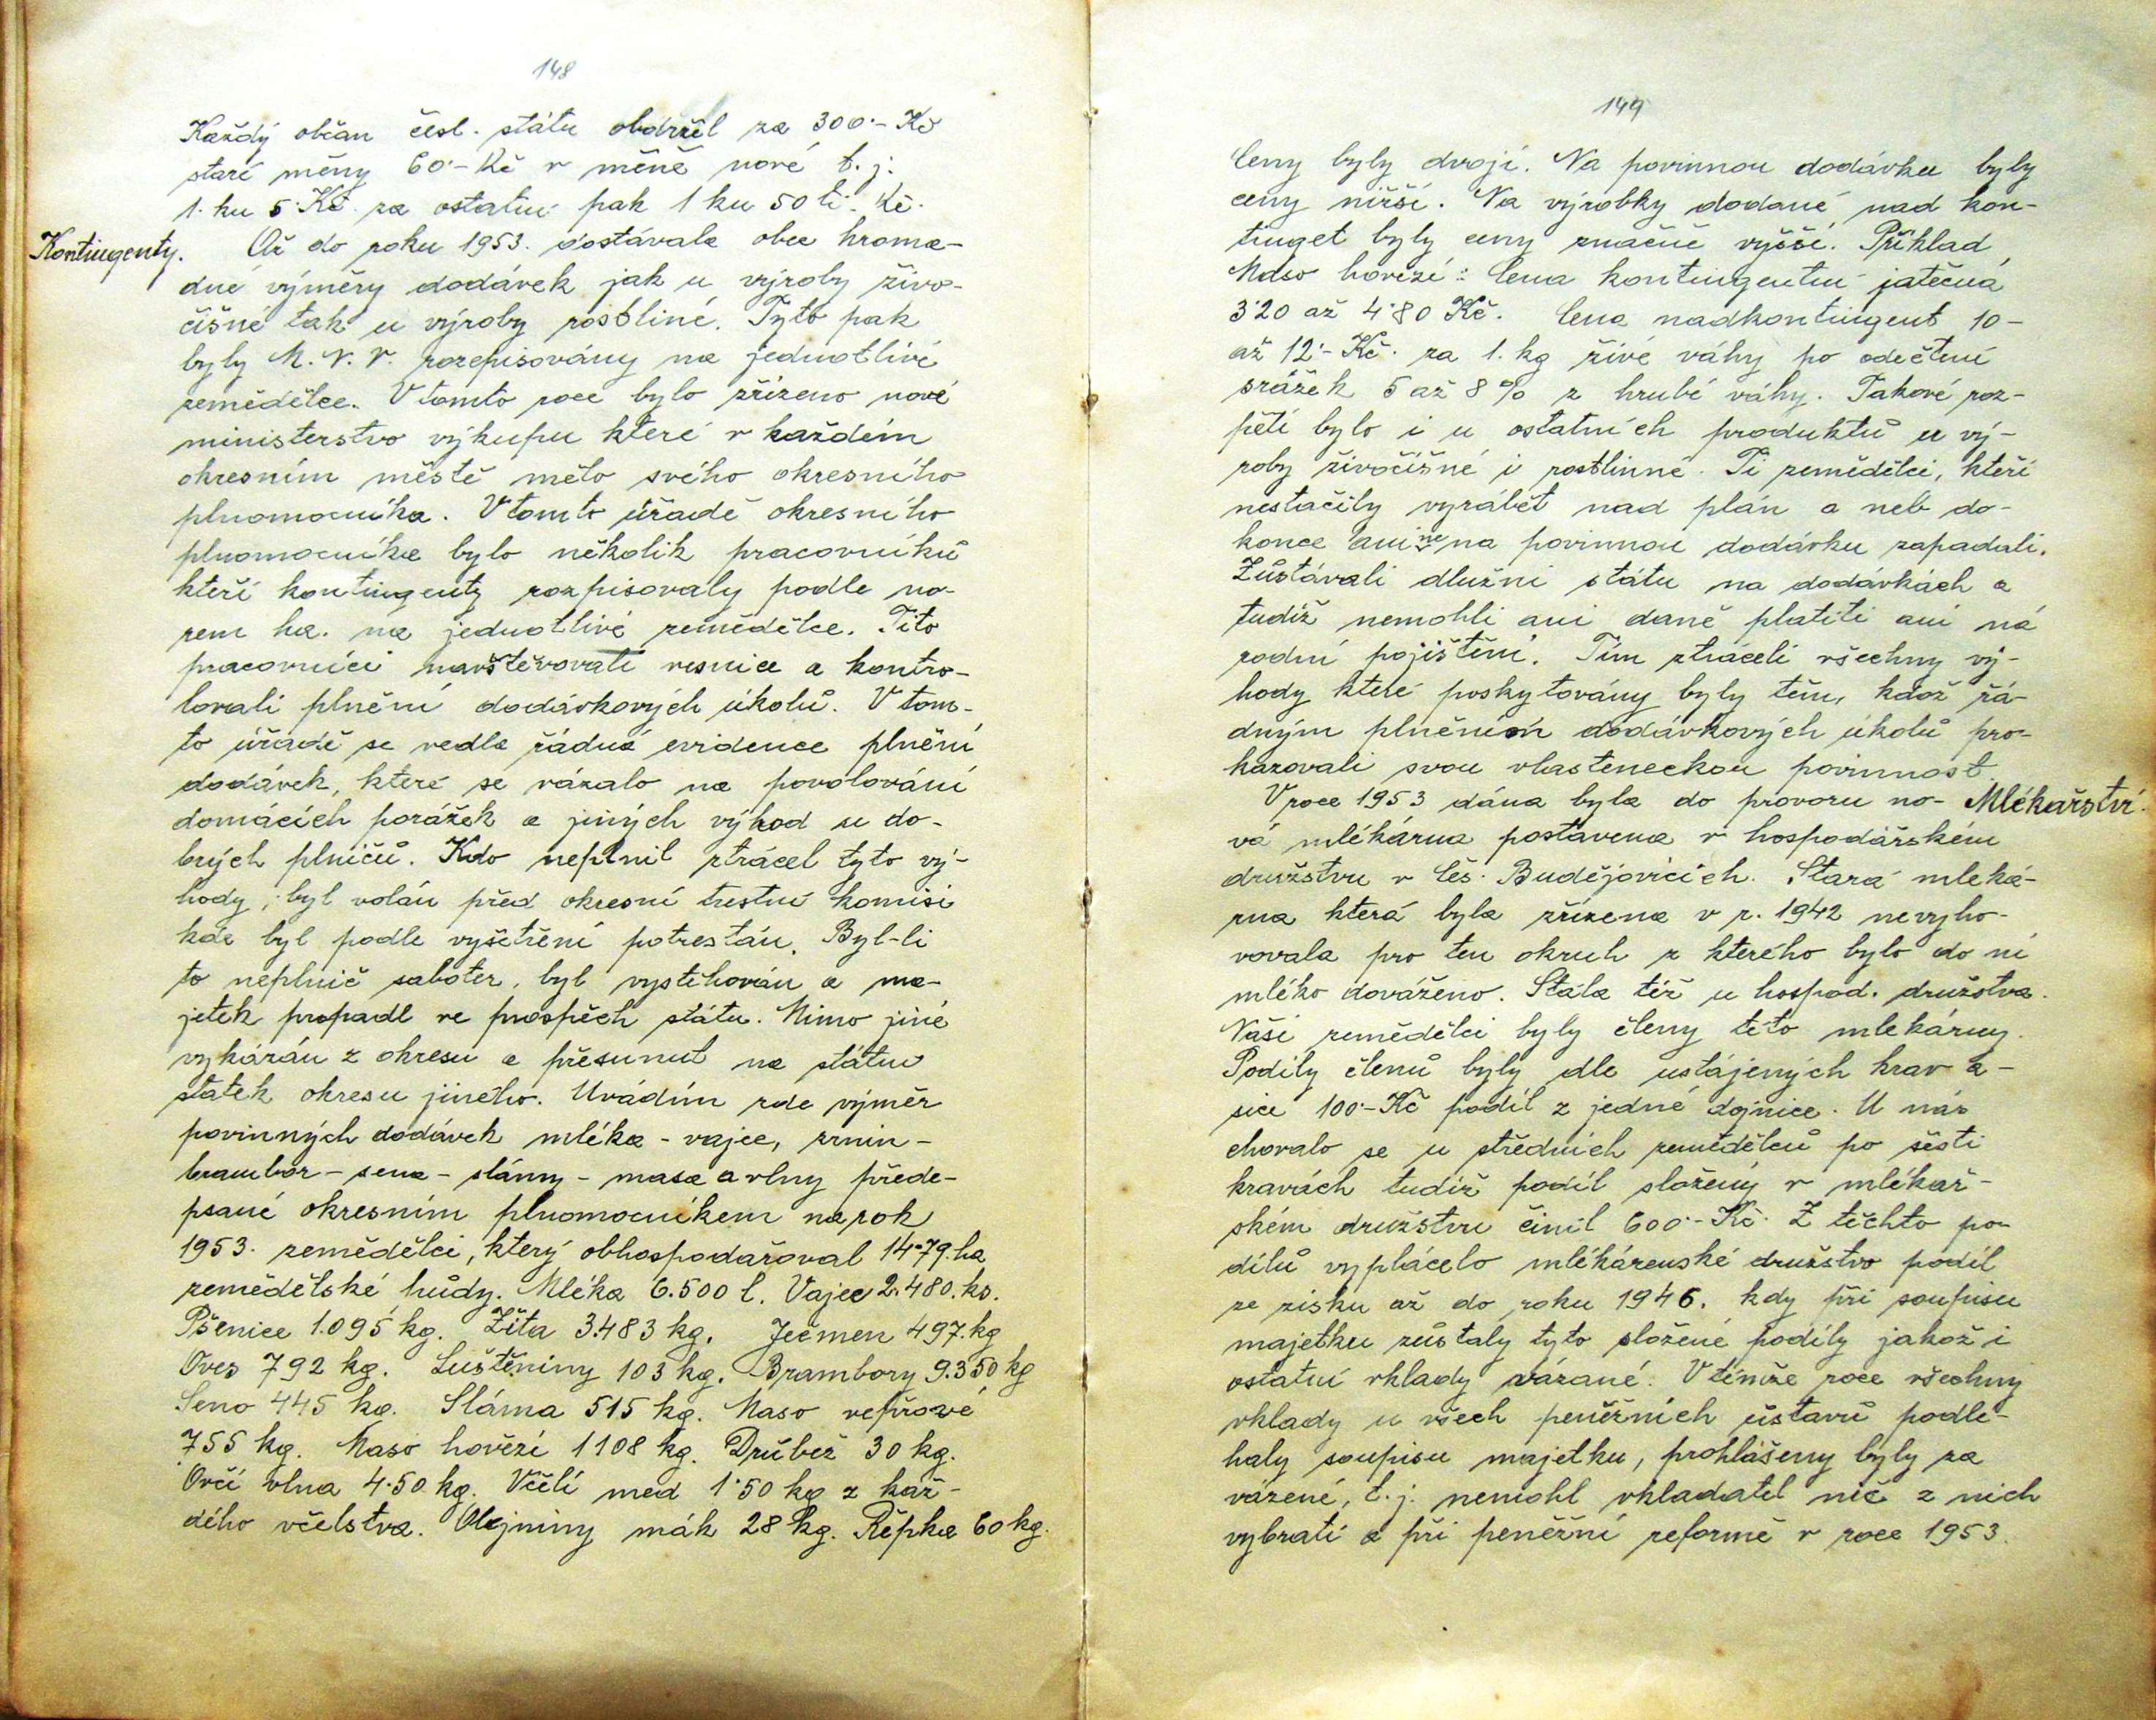 148
Každý občan čésl. státu obdržel za 300·- Kč
staré měny 60·- Kč v měně nové t. j.
1. ku 5·Kč. za ostatní pak 1 ku 50ti. Kč.
Kontingenty. Až do roku 1953. dostávala obec hroma-
dné výměry dodávek jak u výroby živo-
čišné tak u výroby rostliné. Tyto pak
byly M. N. V. rozepisovány na jednotlivé
zemědělce. V tomto roce bylo zřízeno nové
ministerstvo výkupu které v každém
okresním městě mělo svého okresního
plnomocníka. V tomto úřadě okresního
plnomocníka bylo několik pracovníků
kteří kontingenty rozpisovaly podle no-
rem ha. na jednotlivé zemědělce. Tito
pracovníci navštěvovali vesnice a kontro-
lovali plnění dodávkových úkolů. V tom-
to úřadě se vedla řádná evidence plnění
dodávek, které se vázalo na povolování
domácích porážek a jiných výhod u do-
brých plničů. Kdo neplnil ztrácel tyto vý-
hody, byl volán před okresní trestní komisi
kde byl podle vyšetření potrestán. Byl-li
to neplnič saboter, byl vystěhován a ma-
jetek propadl ve prospěch státu. Mimo jiné
vykázán z okresu a přesunut na státní
statek okresu jiného. Uvádím zde výměr
povinných dodávek mléka - vajec, zrnin -
brambor - sena - slámy - masa a vlny přede-
psané okresním plnomocníkem na rok
1953. zemědělci, který obhospodařoval 14·79. ha
zemědělské půdy. Mléka 6.500 l. Vajec 2.480. ks.
Pšenice 1.095 kg. Žita 3.483 kg. Ječmen 497. kg
Oves 792 kg. Luštěniny 103 kg. Brambory 9.350 kg
Seno 445 kg. Sláma 515 kg. Maso vepřové
755 kg. Maso hovězí 1108 kg. Drůbež 30 kg.
Ovčí vlna 4·50 kg. Včelí med 1·50 kg z kaž-
dého včelstva. Olejniny mák 28 kg. Řepka 60 kg.
149
Ceny byly dvojí. Na povinnou dodávku byly
ceny nižší. Na výrobky dodané nad kon-
tinget byly ceny značně vyšší. Příklad
Maso hovězí: Cena kontingentní jatečná
3·20 až 4·80 Kč. Cena nadkontingent 10-
až 12·- Kč. za 1. kg živé váhy po odečtení
srážek 5 až 8% z hrubé váhy. Takové roz-
pětí bylo i u ostatních produktů u vý-
roby živočišné i rostlinné. Ti zemědělci, kteří
nestačily vyrábět nad plán a neb do-
konce ani ne na povinnou dodávku zapadali.
Zůstávali dlužni státu na dodávkách a
tudíž nemohli ani daně platiti ani ná
rodní pojištění. Tím ztráceli všechny vý-
hody které poskytovány byly těm, kdož řá-
dným plněním dodávkových úkolů pro-
kazovali svou vlasteneckou povinnost.
V roce 1953 dána byla do provozu no- Mlékařství.
vá mlékárna postavena v hospodářském
družstvu v Čes. Budějovicích. Stará mleká-
rna která byla zřízena v r. 1942 nevyho-
vovala pro ten okruh z kterého bylo do ní
mléko dováženo. Stála též u hospod. družstva.
Naši zemědělci byly členy této mlekárny.
Podíly členů byly dle ustájených krav a-
sice 100·- Kč podíl z jedné dojnice. U nás
chovalo se u středních zemědělců po šesti
kravách tudíž podíl složený v mlékař-
ském družstvu činil 600·- Kč. Z těchto po-
dílů vyplácelo mlékárenské družstvo podíl
ze zisku až do roku 1946. kdy při soupisu
majetku zůstaly tyto složené podíly jakož i
ostatní vklady vázané. V témže roce všechny
vklady u všech peněžních ústavů podle-
haly soupisu majetku, prohlášeny byly za
vázené, t. j. nemohl vkladatel nic z nich
vybrati a při peněžní reformě v roce 1953.